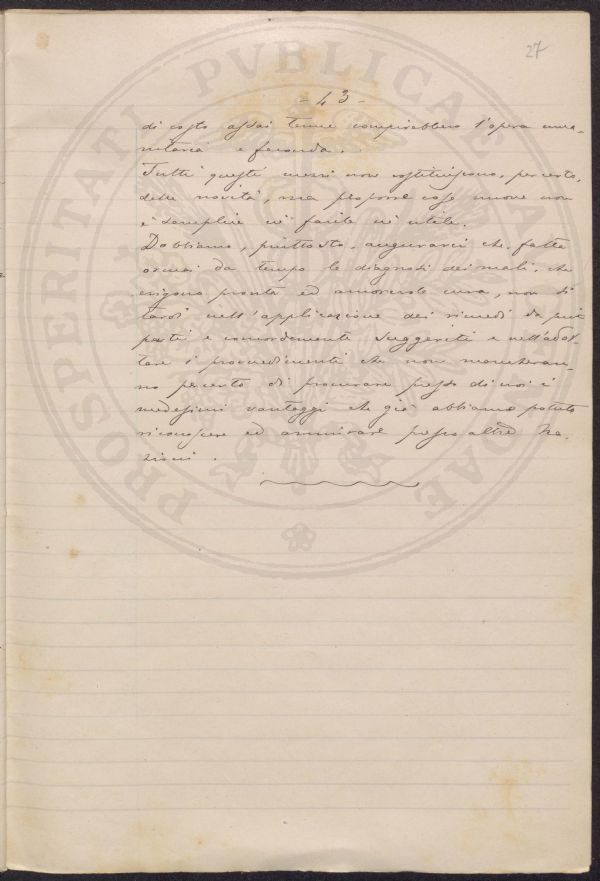 27
- 43 -
di costo assai tenue compirebbero l'opera uma-
nitaria e feconda.
Tutti questi mezzi non costituiscono, per certo,
delle novità, ma proporre cose nuove non
è semplice nè facile nè utile.
Dobbiamo, piuttosto, augurarci che, fatte
ormai da tempo le diagnosi dei mali, che
esigono pronta ed amorevole cura, non si
tardi nell'applicazione dei rimedi da più
parti e concordemente suggeriti e nell'adot-
tare i provvedimenti che non mancheran-
no per certo di procurare presso di noi i
medesimi vantaggi che già abbiamo potuto
riconoscere ed ammirare presso altre Na-
zioni.
PROSPERITATI PVBLICAE AVGENDAE